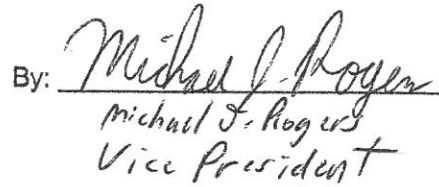 By: Michael J. Rogers
Michael J. Rogers
Vice President